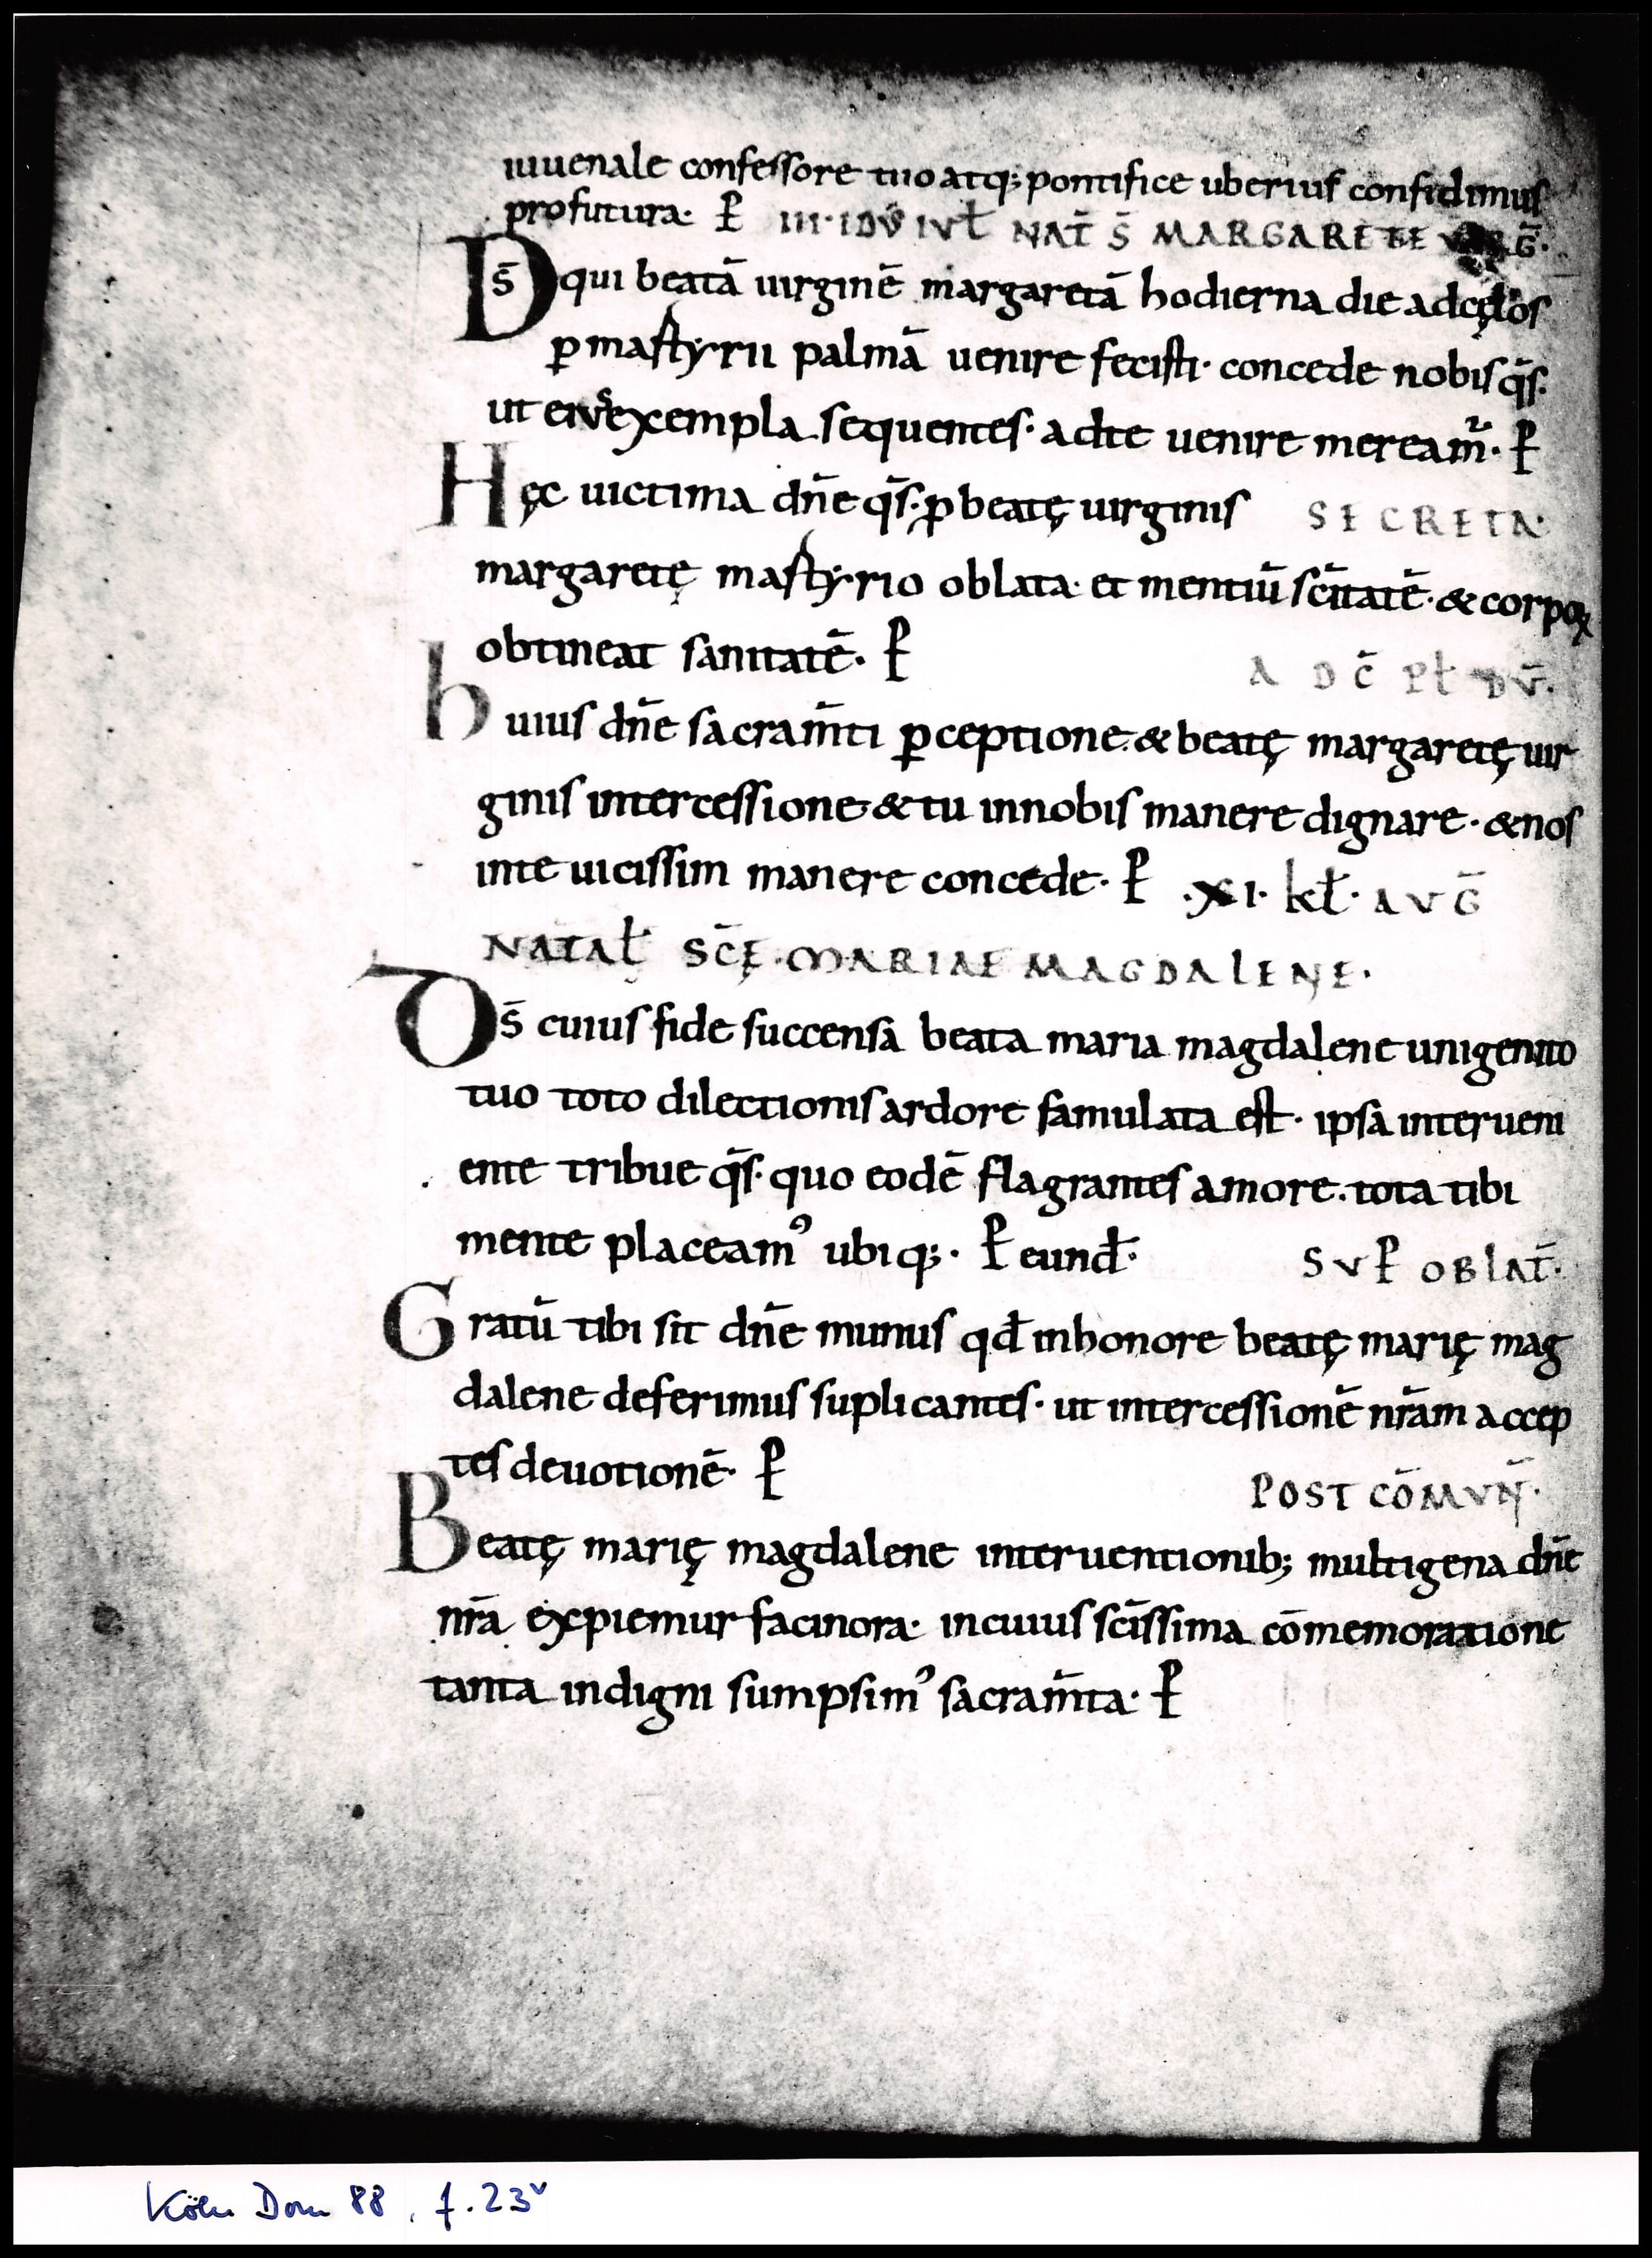 iuuenale confessore tuo atq; pontifice uberius confidimus
profutura· P̱ III·IDV̄ IVŁ NAT̄ S̄ MARGARETE VIRḠ·
DS̄ qui beatā uirginē margaretā hodierna die adcęlos
ꝑ martyrii palmā uenire fecisti· concede nobis q̄s·
ut eius exempla sequentes· adte uenire meream̄· P̱
Hęc uictima dn̄e q̄s· ꝓ beatę uirginis SECRETA·
margaretę martyrio oblata· et mentiū sc̄itatē· & corpoꝝ
obtineat sanitatē· P̱
A D C̄ PŁ DV̄·
huius dn̄e sacram̄ti ꝑceptione· & beatę margaretę uir
ginis intercessione· & tu innobis manere dignare· & nos
inte uicissim manere concede· P̱ ·XI· kł· AVḠ
NATAŁ SC̄Ę· MARIAE MAGDALENE·
DS̄ cuius fide succensa beata maria magdalene unigenito
tuo toto dilectionis ardore famulata est· ipsa interueni
ente tribue q̄s· quo eodē flagrantes amore· tota tibi
mente placeamꝰ ubiq;· P̱ eunđ· SVP̱ OBLAT̄·
Gratū tibi sit dn̄e munus qđ inhonore beatę marię mag
dalene deferimus suplicantes· ut intercessionē nr̄am accep
tes deuotionē· P̱
POST COM̄VN̄·
Beatę marię magdalene interuentionib; multigena dn̄e
nr̄a expiemur facinora· incuius sc̄issima cōmemoratione
tanta indigni sumpsimꝰ sacram̄ta· P̱
Köln Dom 88, f. 23v